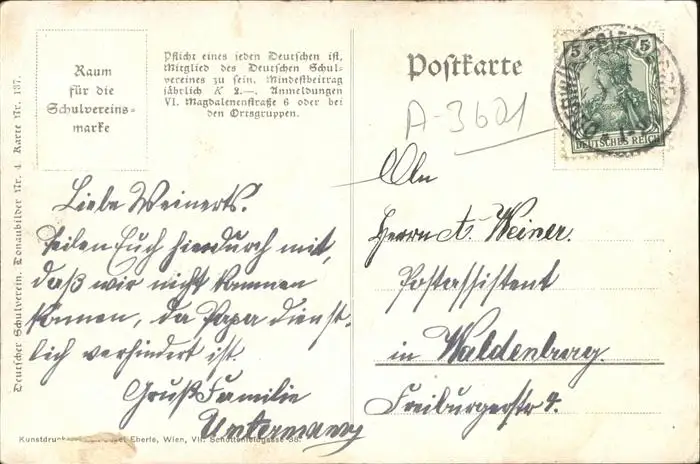 Raum
für die
Schulvereins=
marke
Pflicht eines jeden Deutschen ist,
Mitglied des Deutschen Schul-
vereines zu sein. Mindestbeitrag
jährlich K 2.—. Anmeldungen
VI. Magdalenenstraße 6 oder bei
den Ortsgruppen.
Postkarte
5 5
DEUTSCHES REICH
A-3601
Deutscher Schulverein. Donaubilder Nr. 4. Karte Nr. 137.
Liebe Weinerts!
Teilen Euch hierdurch mit,
daß wir nicht kommen
können, da Papa dienst-
lich verhindert ist.
Gruß Familie
Untermany
An
Herrn A. Weiner.
Postassistent
in Waldenburg.
Freiburgerstr 4.
Kunstdruck Josef Eberle, Wien, VII. Schottenfeldgasse 38.